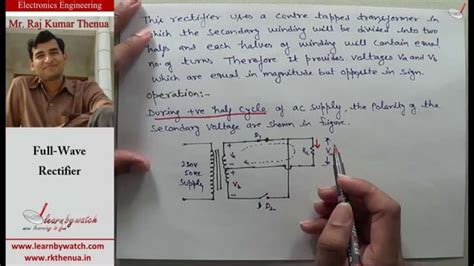 Electronics Engineering
Mr. Raj Kumar Thenua
Full-Wave
Rectifier
learnbywatch
www.learnbywatch.com
www.rkthenua.in
This rectifier uses a centre tapped transformer in
which the secondary winding will be divided into two
halfs and each halves of winding will contain equal
no. of turns. Therefore It provides voltages Va and Vb
which are equal in magnitude but opposite in sign.
operation:-
During +ve half cycle of AC supply, the Polarity of the
secondary voltage are shown in figure.
230V
50Hz
Supply
Va
Vb
D1
D2
RL